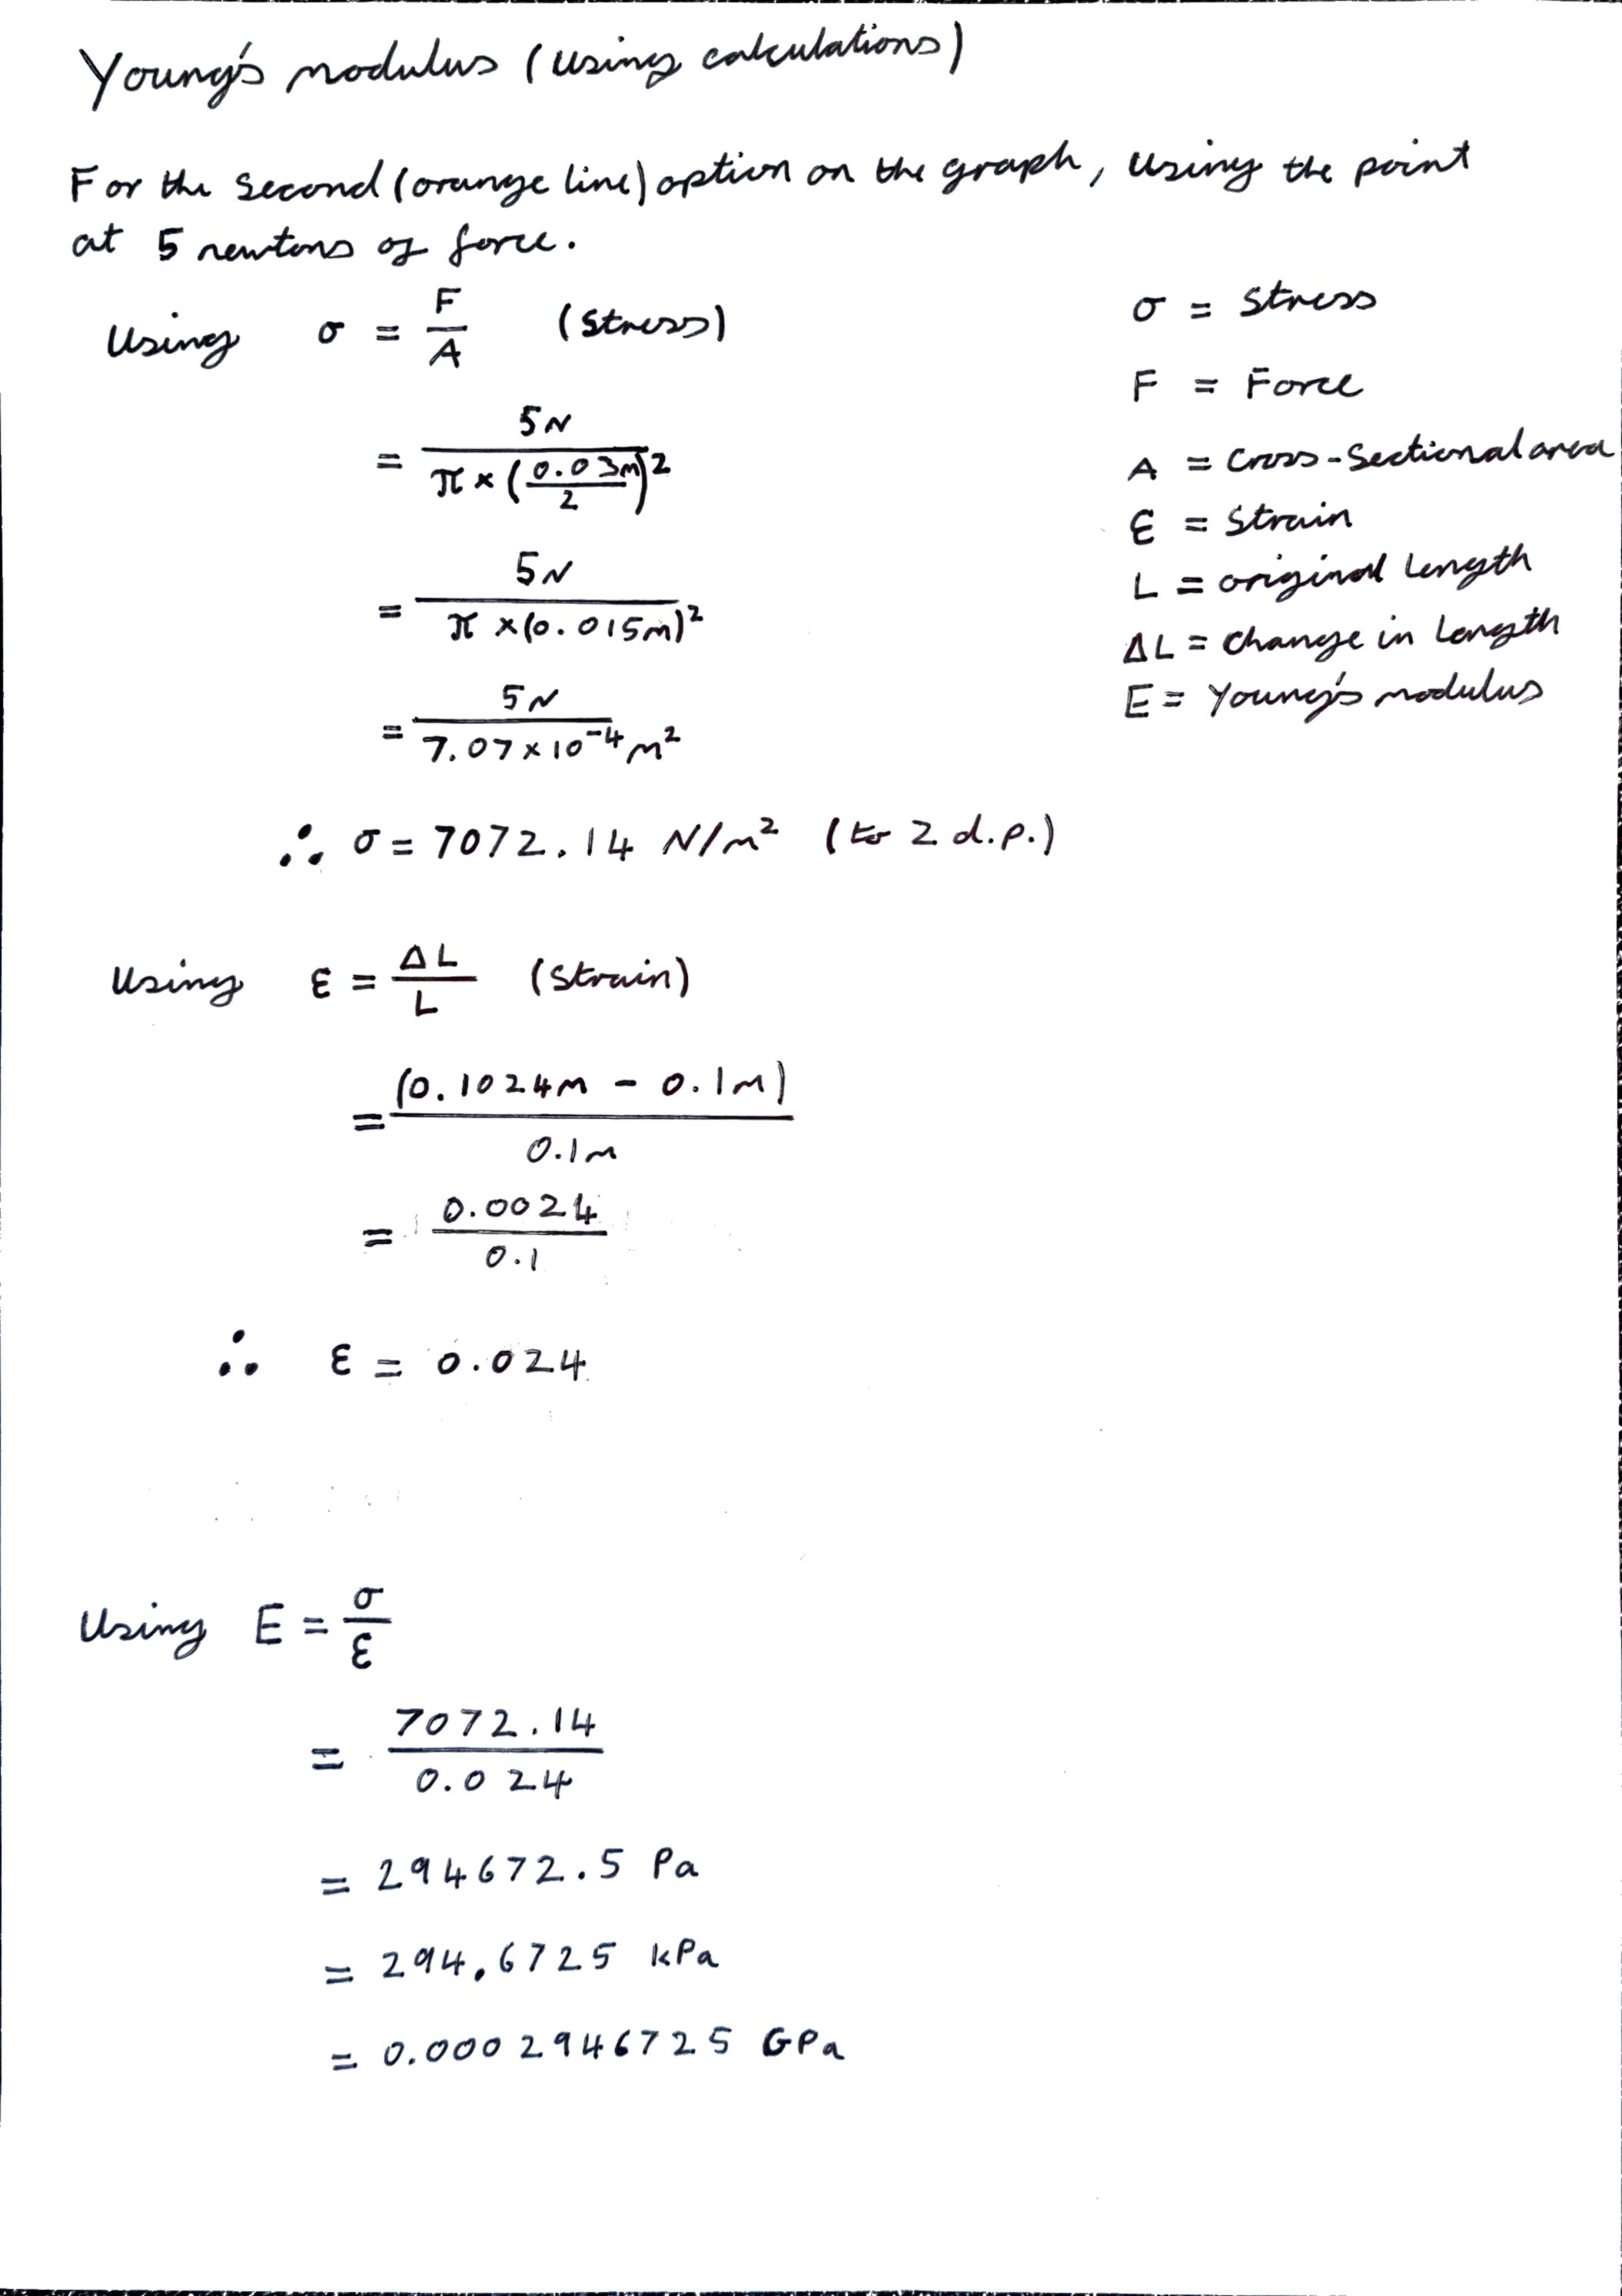 Young's modulus (using calculations)
For the second (orange line) option on the graph, using the point
at 5 newtons of force.
Using σ = F/A (stress)
= 5N / π × (0.03m/2)²
= 5N / π × (0.015m)²
= 5N / 7.07 × 10⁻⁴ m²
∴ σ = 7072.14 N/m² (to 2 d.p.)
σ = stress
F = Force
A = cross-sectional area
ε = strain
L = original length
ΔL = change in length
E = Young's modulus
Using ε = ΔL/L (strain)
= (0.1024m - 0.1m) / 0.1m
= 0.0024 / 0.1
∴ ε = 0.024
Using E = σ/ε
= 7072.14 / 0.024
= 294672.5 Pa
= 294.6725 kPa
= 0.0002946725 GPa